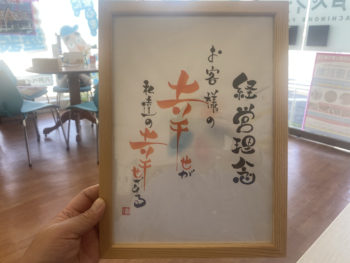 経営理念
お客様の
幸せが
私達の幸せである